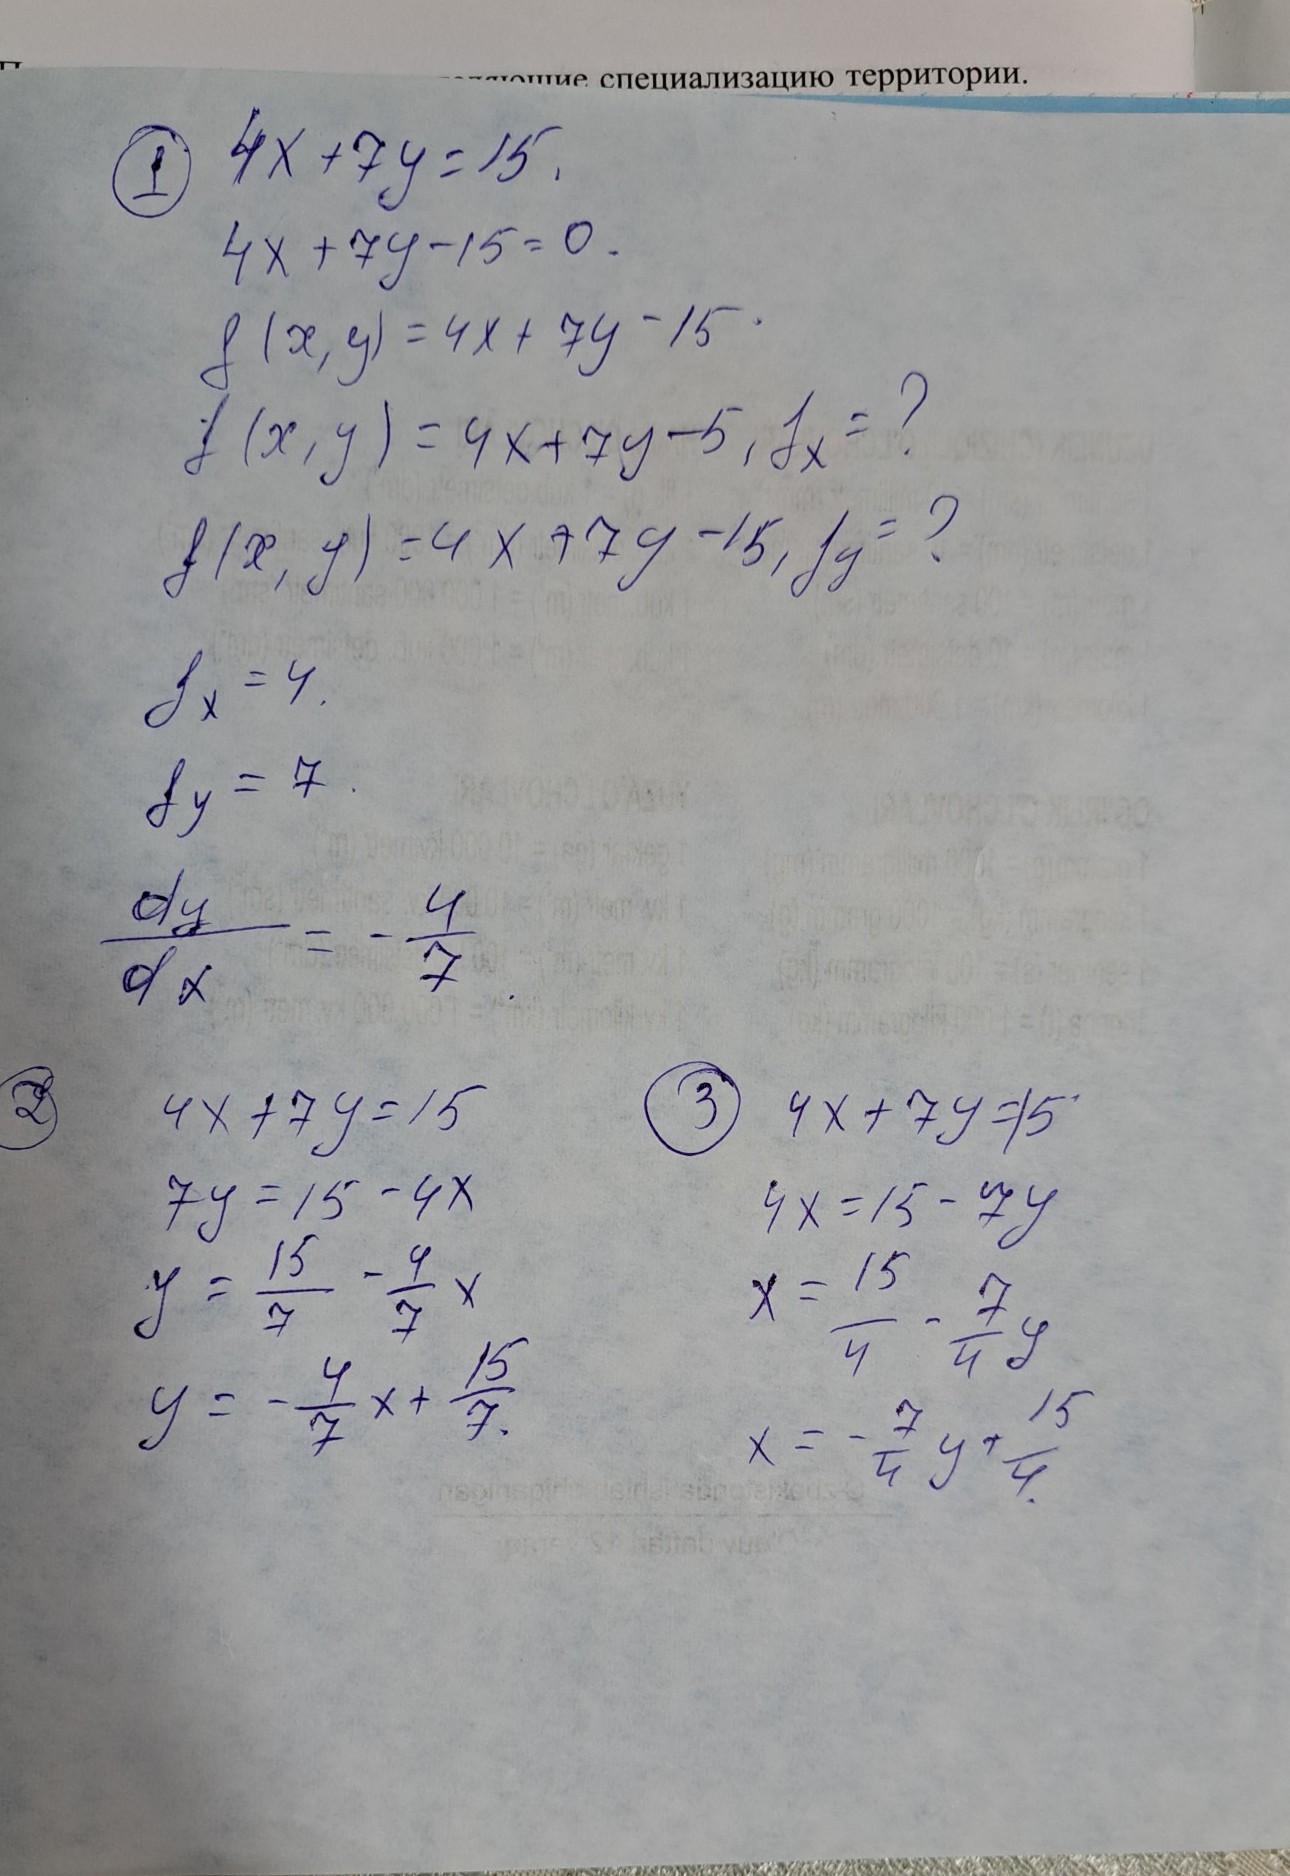 специализацию территории.
① 4x+7y=15.
4x+7y-15=0.
f(x,y)=4x+7y-15.
f(x,y)=4x+7y-5, fx=?
f(x,y)=4x+7y-15, fy=?
fx=4.
fy=7.
dy/dx = -4/7.
② 4x+7y=15
7y=15-4x
y=15/7-4/7x
y=-4/7x+15/7.
③ 4x+7y=15
4x=15-7y
x=15/4-7/4y
x=-7/4y+15/4.